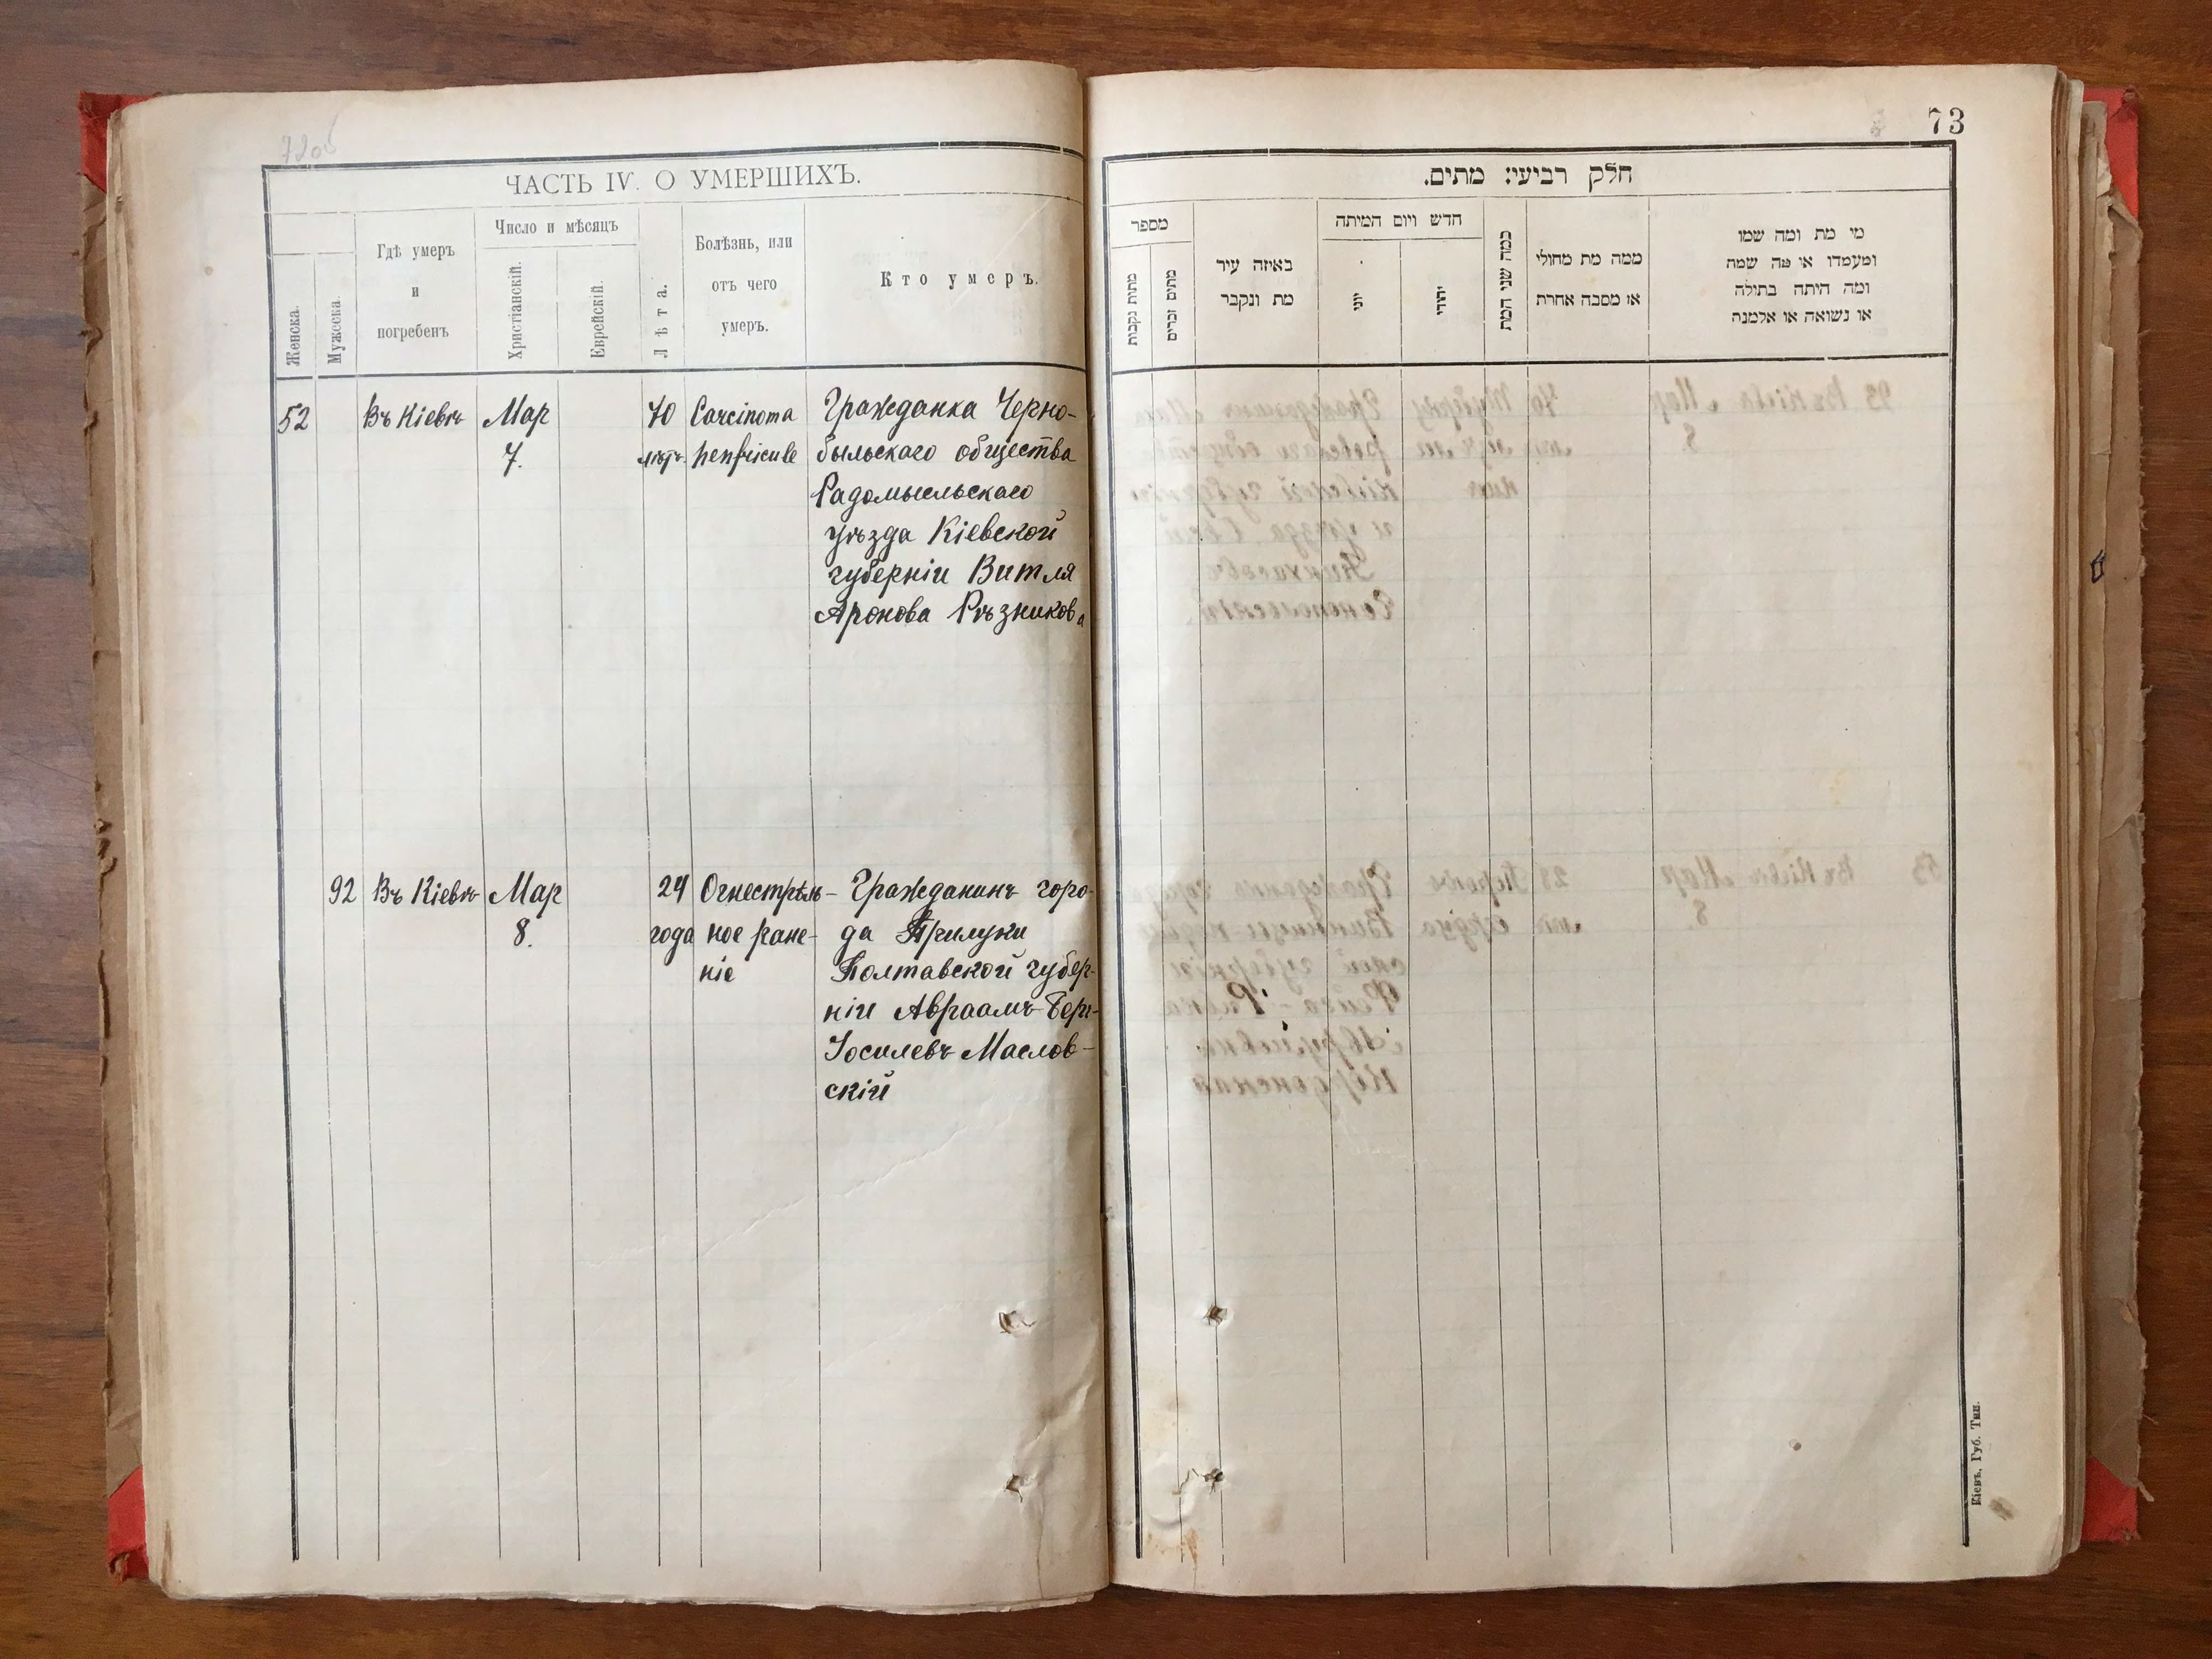 ЧАСТЬ IV. О УМЕРШИХЪ.
Женска.
Мужеска.
Гдѣ умеръ
и
погребенъ
Число и мѣсяцъ
Христіанскій.
Еврейскій.
Лѣта.
Болѣзнь, или
отъ чего
умеръ.
Кто умеръ.
52 Въ Кіевѣ Мар 70 Carcinoma Гражданка Черно-
7. лѣтъ быльскаго общества
Радомысльскаго
уѣзда Кіевской
губерніи Витля
Аронова Рѣзникова
92 Въ Кіевѣ Мар 24 Огнестрѣль- Гражданинъ горо-
8. года ное ране- да Прилуки
ніе Полтавской губер-
ніи Авраамъ-Беръ-
Іосилевъ Маслов-
скій
73
חלק רביעי: מתים.
מספר
מתות נקבות
מתים זכרים
באיזה עיר
מת ונקבר
חדש ויום המיתה
יוני
יהודי
כמה שני המת
ממה מת מחולי
או מסבה אחרת
מי מת ומה שמו
ומעמדו או מה שמה
ומה היתה בתולה
או נשואה או אלמנה
Кіевъ, Губ. Тип.